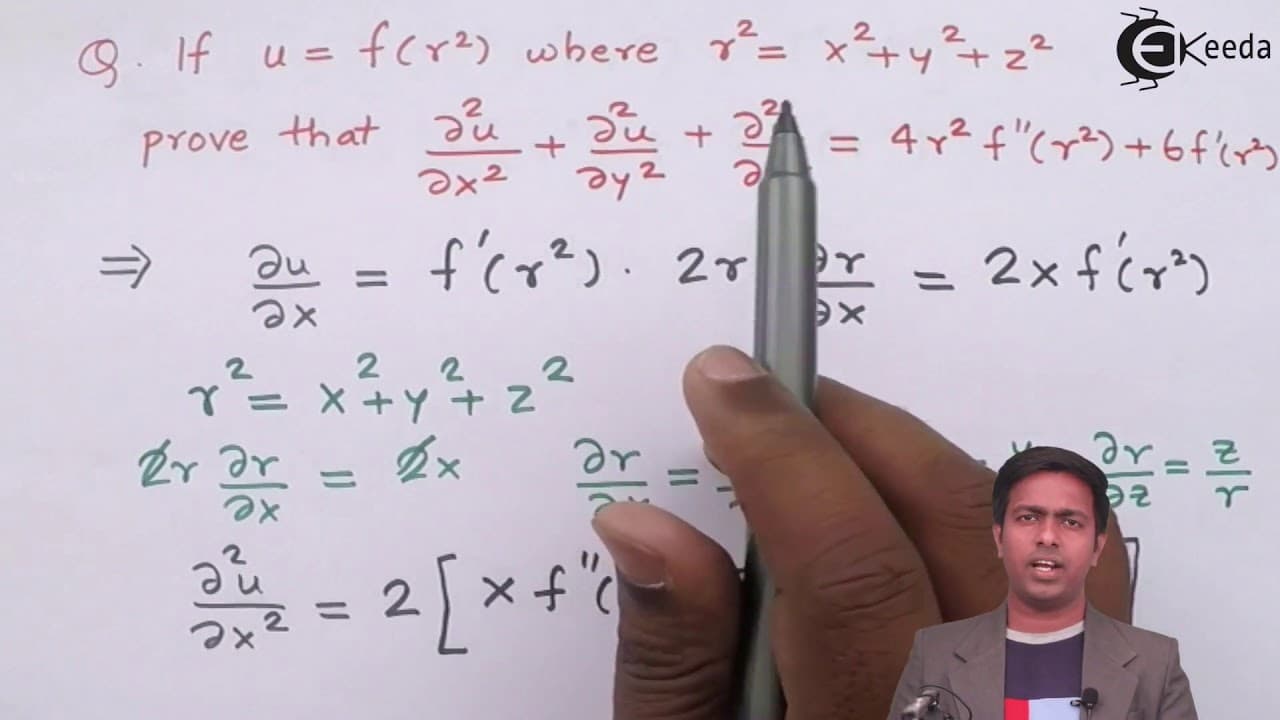 Q. If u = f(r²) where r² = x² + y² + z²
Keeda
prove that ∂²u/∂x² + ∂²u/∂y² + ∂² = 4r² f''(r²) + 6f'(r²)
⇒ ∂u/∂x = f'(r²) · 2r ∂r/∂x = 2x f'(r²)
r² = x² + y² + z²
2r ∂r/∂x = 2x ∂r = ∂r/∂z = z/r
∂²u/∂x² = 2 [ x f''(